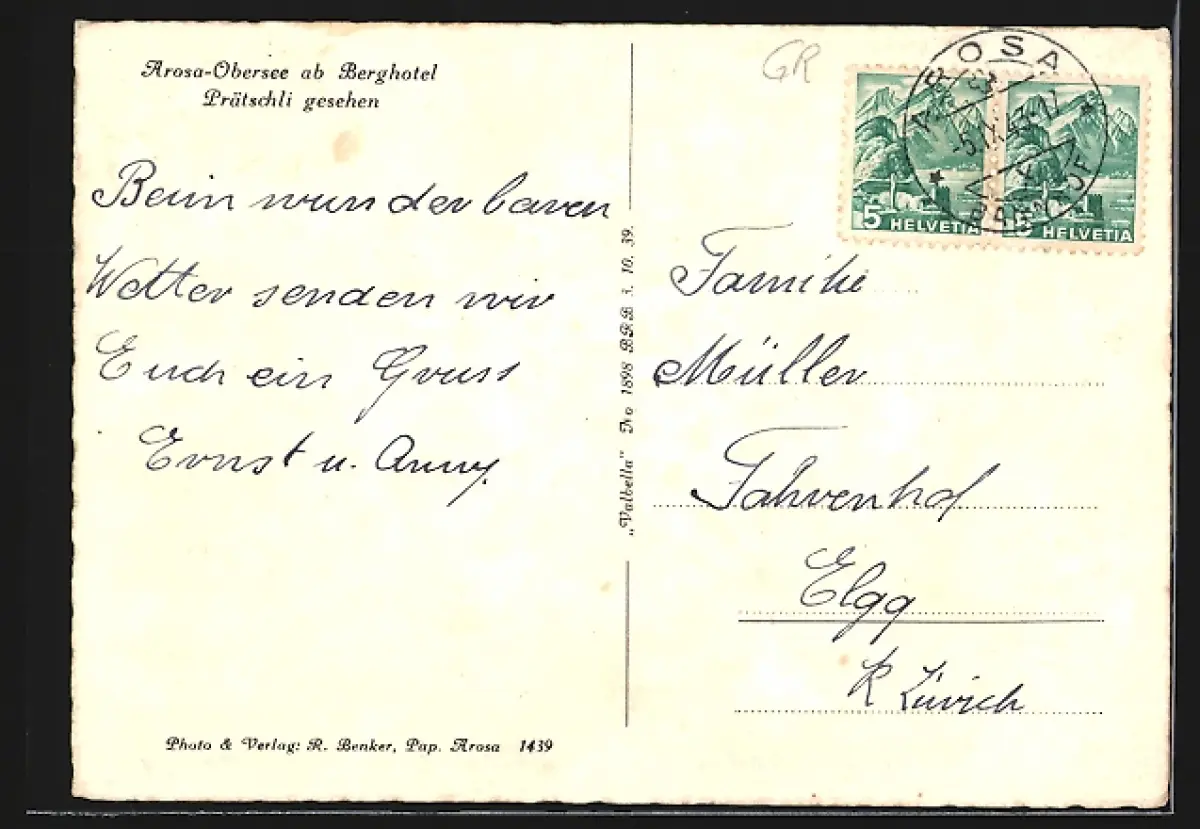 Arosa-Obersee ab Berghotel
Prätschli gesehen
Beim wunderbaren
Wetter senden wir
Euch ein Gruss
Ernst u. Anny.
Photo & Verlag: R. Benker, Pap. Arosa 1439
„Valbella" No 1898 BRB 3. 10. 39.
GR
AROSA
-5.IX.43-
BAHNHOF
5 HELVETIA
5 HELVETIA
Familie
Müller
Fahrenhof
Elgg
K Zürich